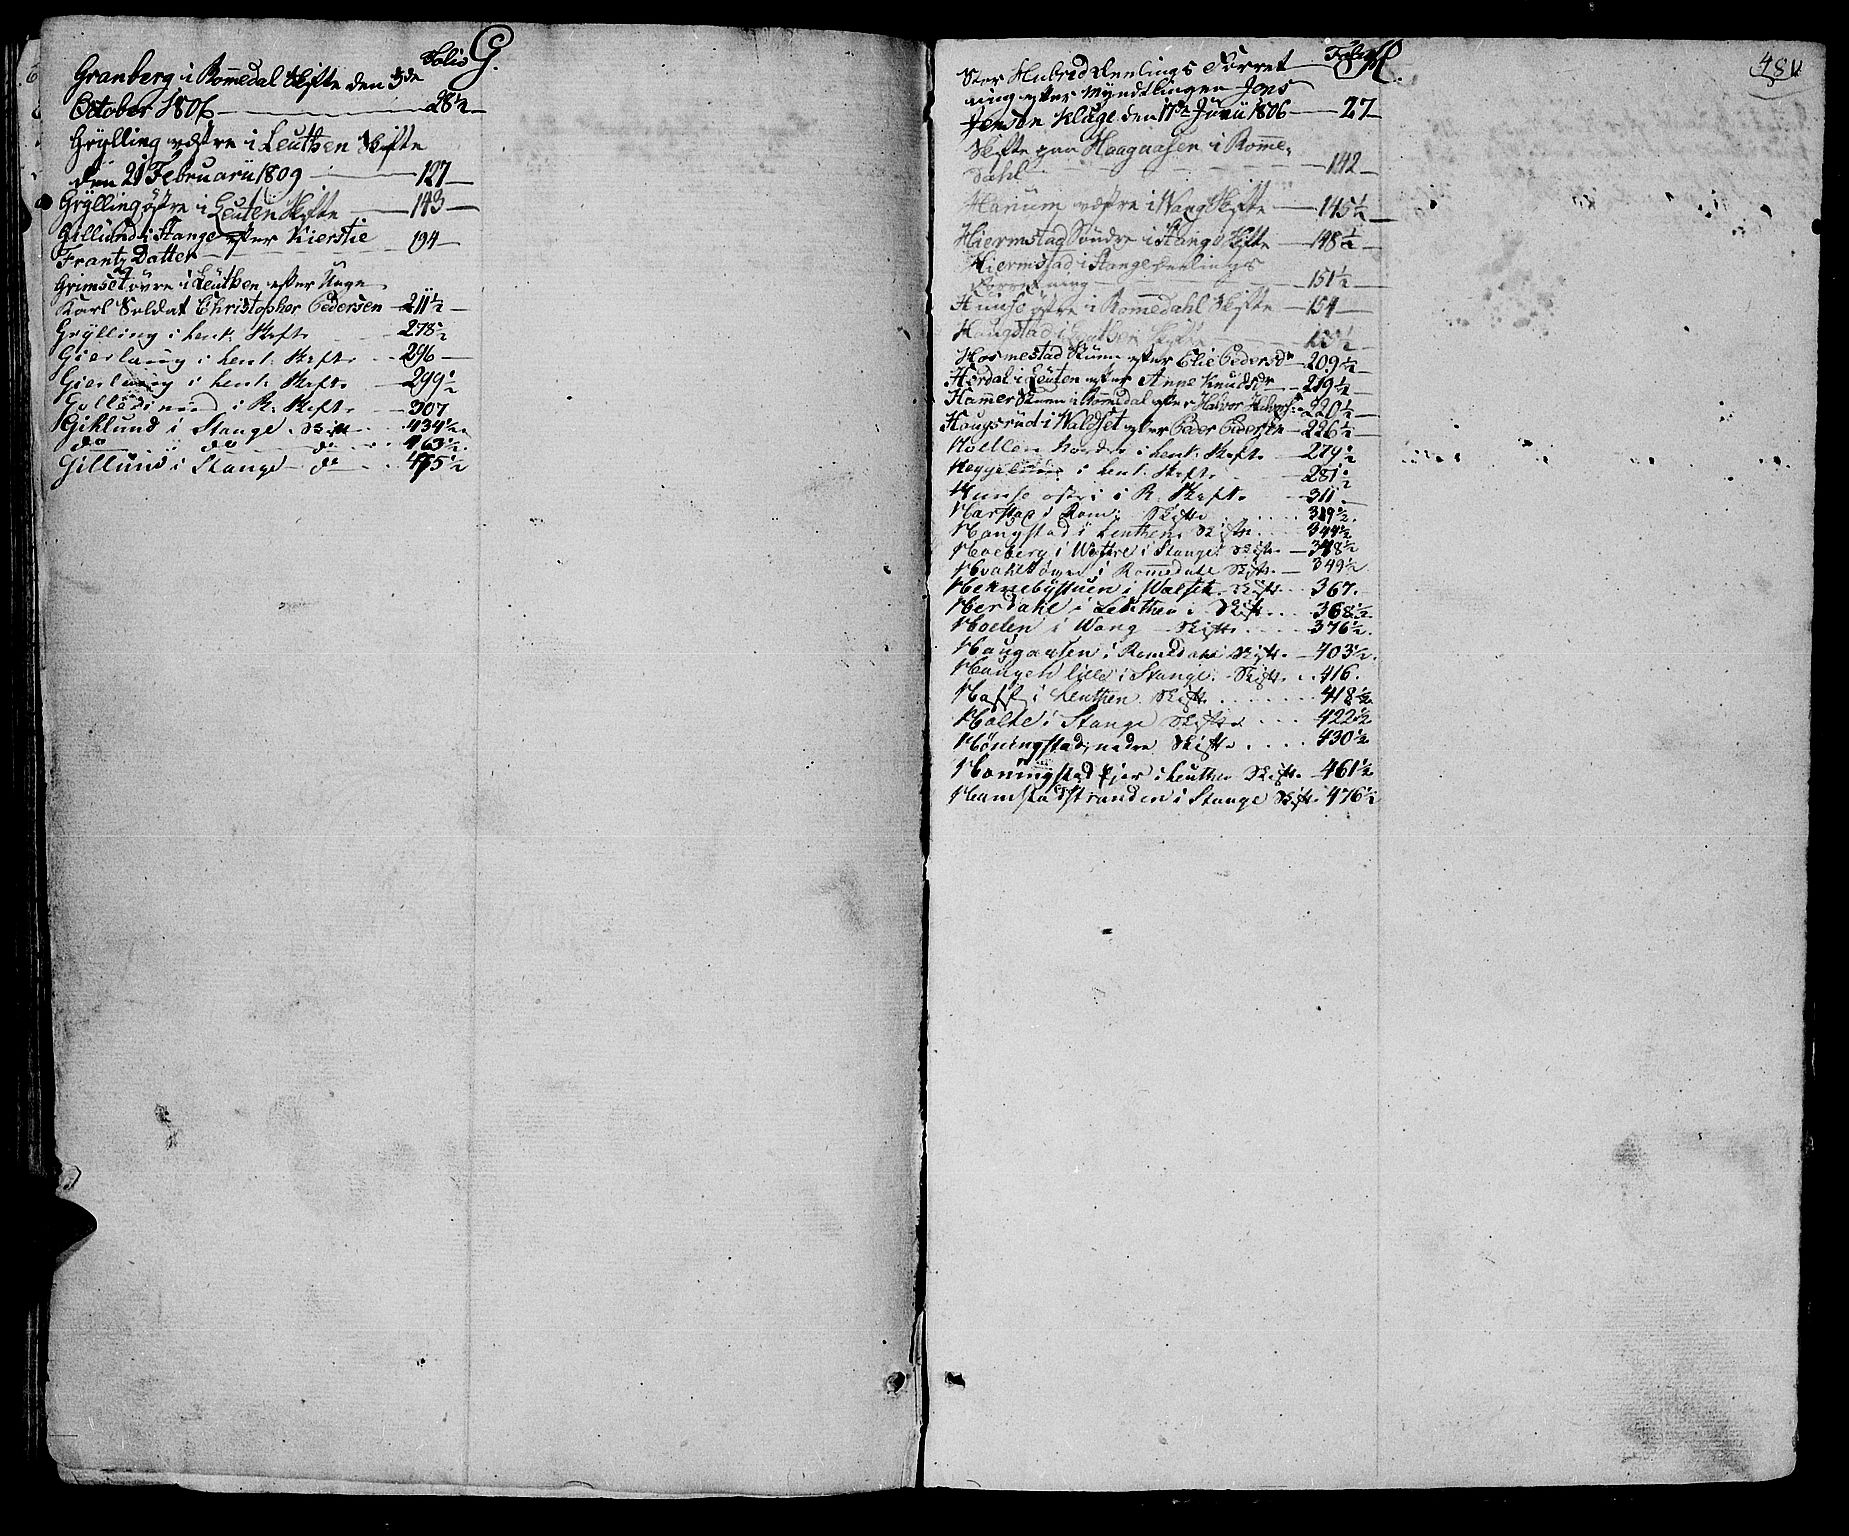 G.
Folio
Granberg i Rommedal Skifte den 3de
October 1806 28½
Grÿlling vestre i Leuthen Skifte
den 21 Februarii 1809 127
Grÿlling østre i Leuten Skifte 143
Gillund i Stange efter Kierstie
Frantz Datter 194
Grimset øvre i Leuthen efter Unge
Karl Soldat Christopher Pedersen 211½
Grÿlling i Leut: Skifte 278½
Gierluug i Leut: Skifte 296
Gierluug i Leut: Skifte 299½
i R: Skifte 307
Giklund i Stange Skifte 434½
do do do 463½
Gillund i Stange do 475½
H.
Folio
481
Deelings Forret
ning efter Myndtlingen Jens
Jensen Kluge den 17de Junii 1806 27
Skifte paa Haagaasen i Romme,
dahl 142
Hanum vestre i Wang Skifte 145½
Hiermstad Søndre i Stange Skifte 148½
Hiermstad i Stange Deelings
Forretning 151½
Hunse østre i Rommedahl Skifte 154
Haugstad i Leuthen Skifte
Hosmestad Stuen efter Elie Pedersdr 209½
Herdal i Leuten efter Anne Knudsdr 219½
Hammer Stuen i Rommedal efter Halvor Halvors: 220½
Haugsrud i Waldset efter Peder Pedersen 226½
Hoellen Nordre i Leut: Skifte 279½
i Leut: Skifte 281½
Hunse østre i R: Skifte 311
Harstad i Rom: Skifte 319½
Haugstad i Leuthen Skifte 344½
Hoeberg i Westre i Stange Skifte 348½
i Rommedahl Skifte 349½
Hernebÿstuen i Walset Skifte 367.
Herdahl i Leuthen Skifte 368½
Hoelen i Wang Skifte 376½
Haugaasen i Romedahl Skifte 403½
Haugen lille i Stange Skifte 416.
Hoff i Leuthen Skifte 418½
Holte i Stange Skifte 422½
Høningstad nedre Skifte 430½
Honningstad Ejer i Leuthen Skifte 461½
Hamstadstranden i Stange Skifte 476½